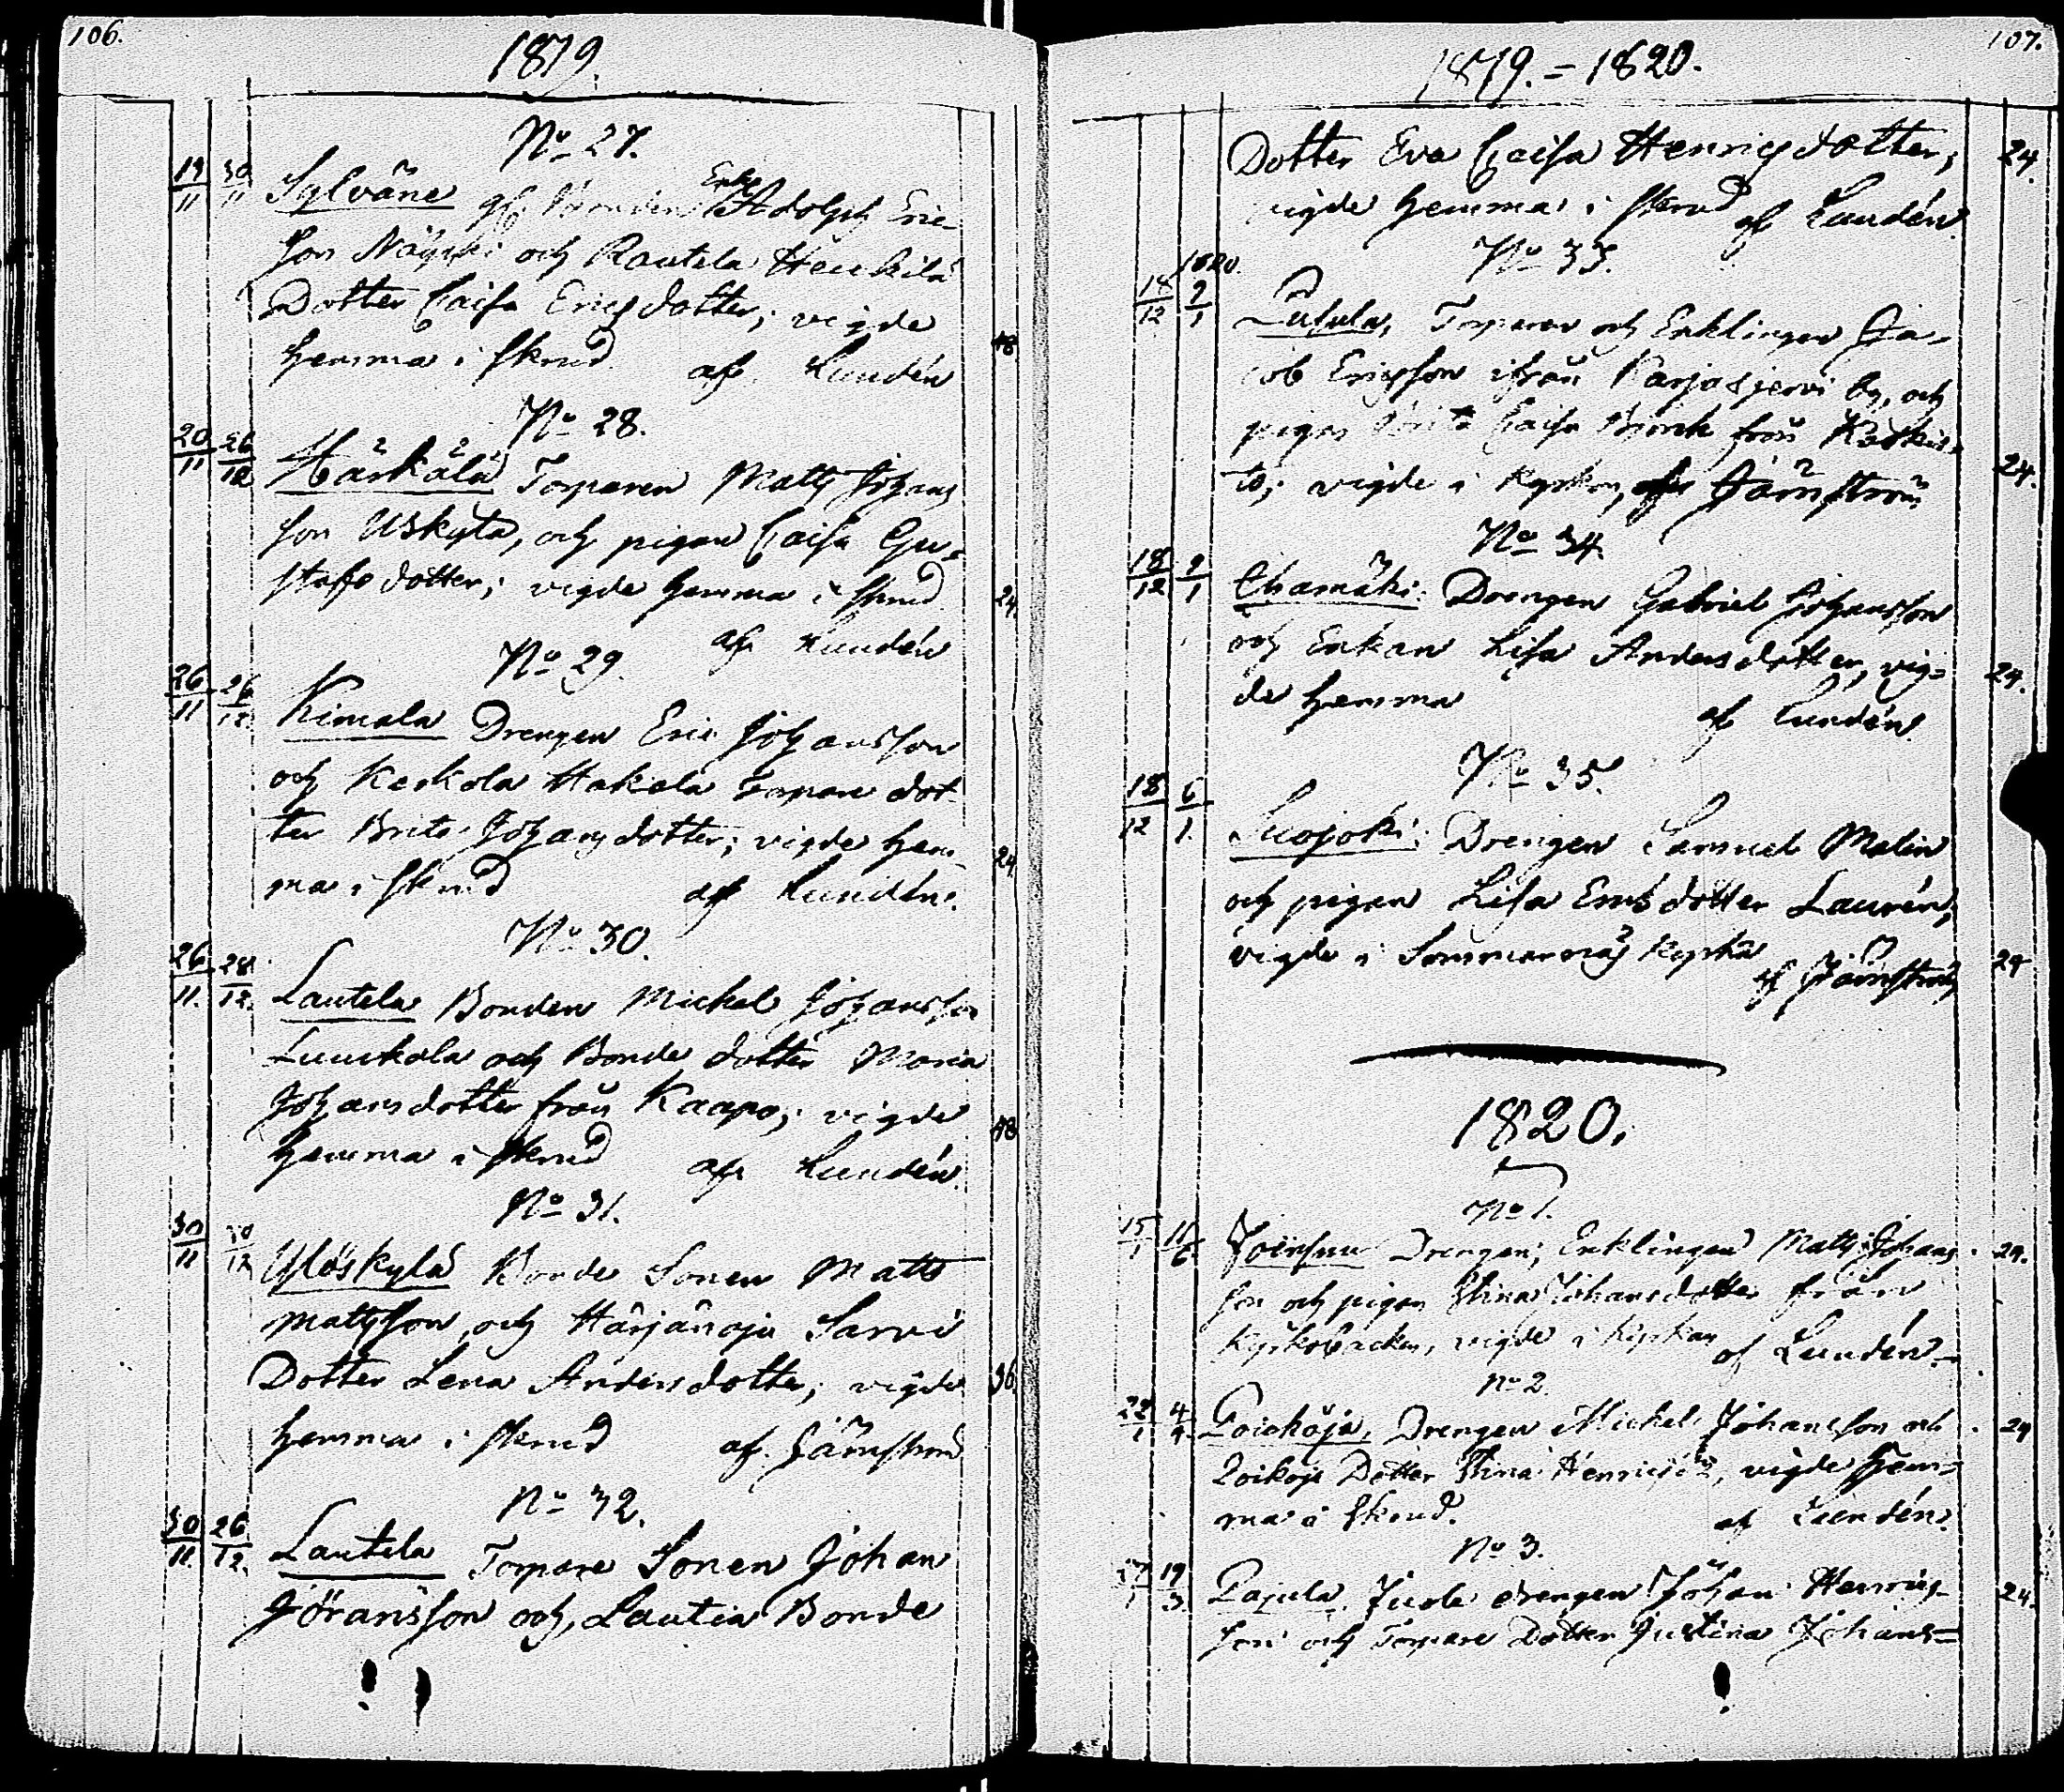 106.
1819.
No 27.
19/11 30/11 Sylväne gl. Bonden Enkl. Adolph Eric-
son Näyski och Rautela Heickilä
Dotter Caisa Ericsdotter; vigde
hemma i skrud af Lundén 48
No 28.
20/11 26/12 Härkälä Torparen Matts Johans
son Uskyla, och pigan Caisa Gu-
stafsdotter; vigde hemma i skrud 24.
af Lundén
No 29.
26/11 26/12 Kimala Drengen Eric Johansson
och Kerkola Hakala Torpare dot-
ter Brita Johansdotter; vigde hem-
ma i skrud af Lundén. 24
No 30.
26/11. 28/12. Lautela Bonden Michel Johansson
Luuckala och Bonde dotter Maria
Johansdotter från Kaapo; vigde
hemma i skrud af Lundén. 48
No 31.
30/11 /12 Yläskylä Bonde Sonen Matts
Mattsson, och Härjänoja Sarvi
Dotter Lena Andersdotter; vigde 36.
hemma i skrud af Jämström
No 32.
30/11. 26/12. Lautela Torpare Sonen Johan
Jöransson och, Lautia Bonde
107.
1819. = 1820.
Dotter Eva Caisa Henricsdotter; 24.
vigde hemma i skrud af Lundén.
No 33.
1820.
18/12 9/1 Torparen och Enklingen Ja-
cob Ericsson ifrån Karjasjervi by, och
pigan Brita Caisa Björck från Katkis-
to; vigde i Kyrkan, af Jämström 24.
No 34.
18/12 9/1 Drengen Gabriel Johansson
och Enkan Lisa Andersdotter, vig-
de hemma af Lundén 24.
No 35.
18/12 6/1. Suojoki: Drengen Samuel Malin
och pigan Lisa Ericsdotter Laurén;
vigde i Sommarnäs Kyrka
af Jämström 24
1820.
No 1.
15/1 11/6 Joensuu Drengen, Enklingen Matts Johans- 24.
son och pigan Stina Johansdotter från
Kyrkobacken, vigde i Kyrkan af Lundén-
No 2.
22/1 4/4 Poickoja, Drengen Michel Johansson och 24
Loikoja Dotter Stina Henricsdr, vigde hem-
ma i Skrud. af Lundén.
No 3.
19/3. Pajula. drengen Johan Henrics- 24.
son och Torpare Dotter Justina Johans=